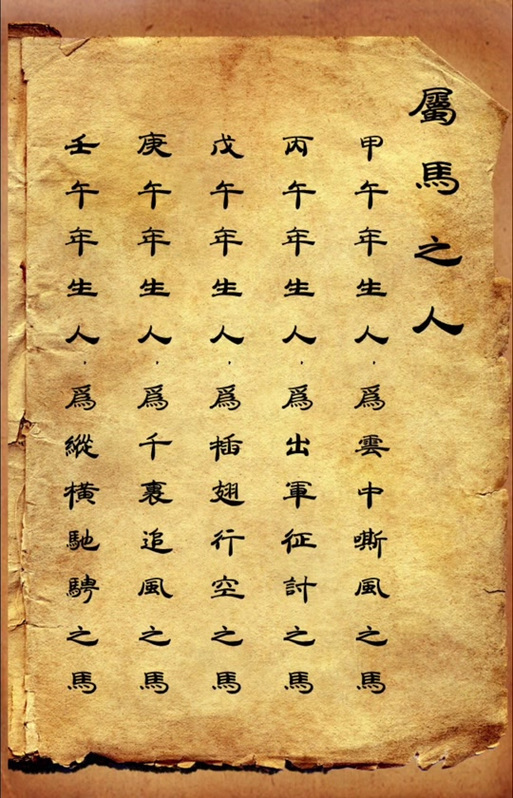 屬馬之人
甲午年生人，爲雲中嘶風之馬
丙午年生人，爲出軍征討之馬
戊午年生人，爲插翅行空之馬
庚午年生人，爲千裏追風之馬
壬午年生人，爲縱橫馳騁之馬